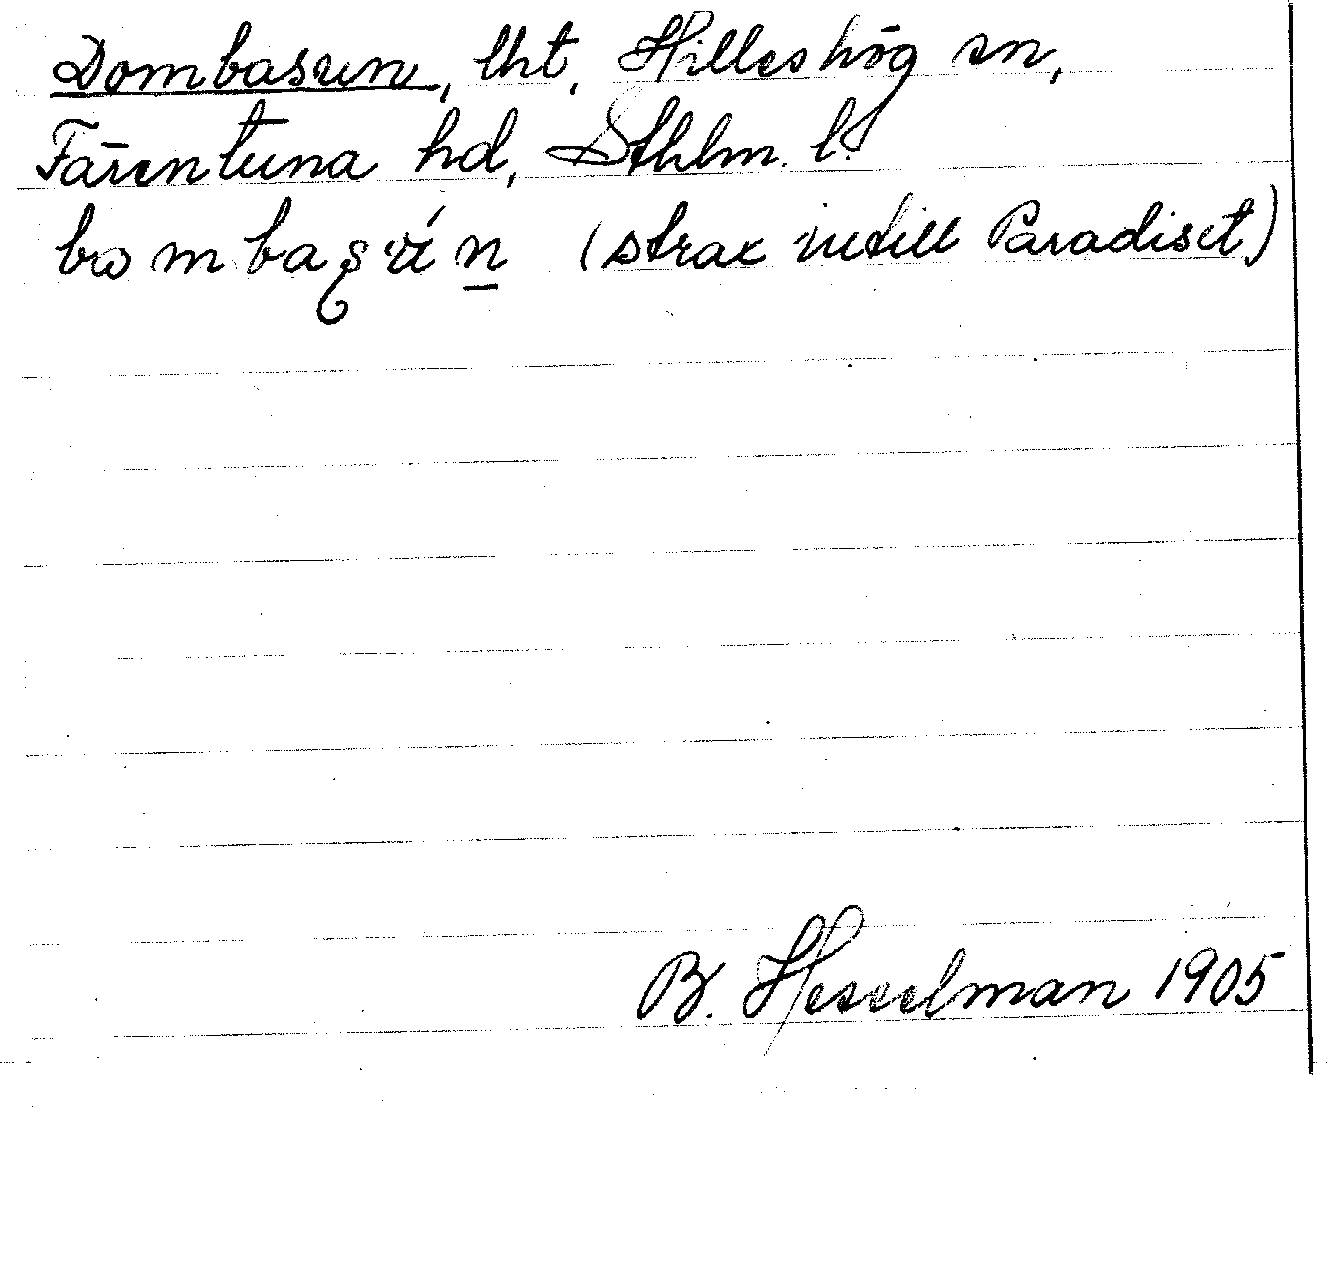 Dombasun, lht, Hilleshög sn,
Färentuna hd, Sthlm. l.
(strax intill Paradiset)
B. Hesselman 1905